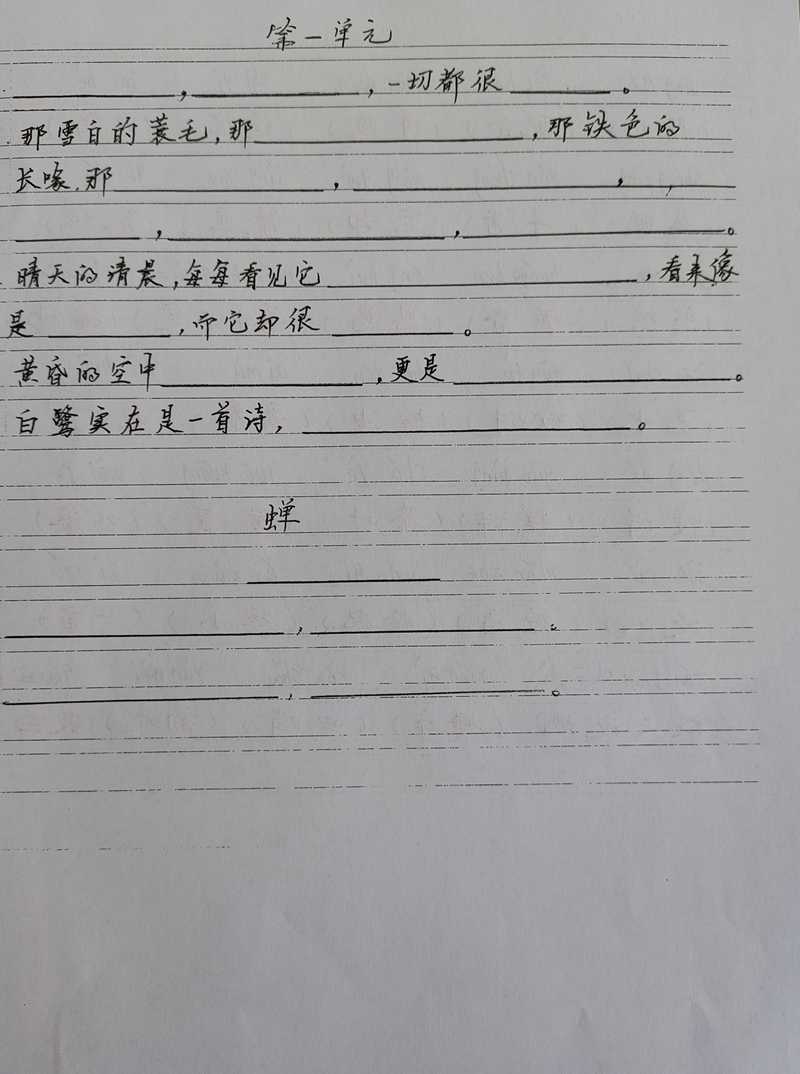 第一单元
____________,____________,一切都很________。
那雪白的蓑毛,那________________,那铁色的
长喙,那______________,________________,________
________,________________,________________。
晴天的清晨,每每看见它____________________,看来像
是________,而它却很________。
黄昏的空中____________,更是________________。
白鹭实在是一首诗,____________________。
蝉
____________
________________,____________。
________________,____________。